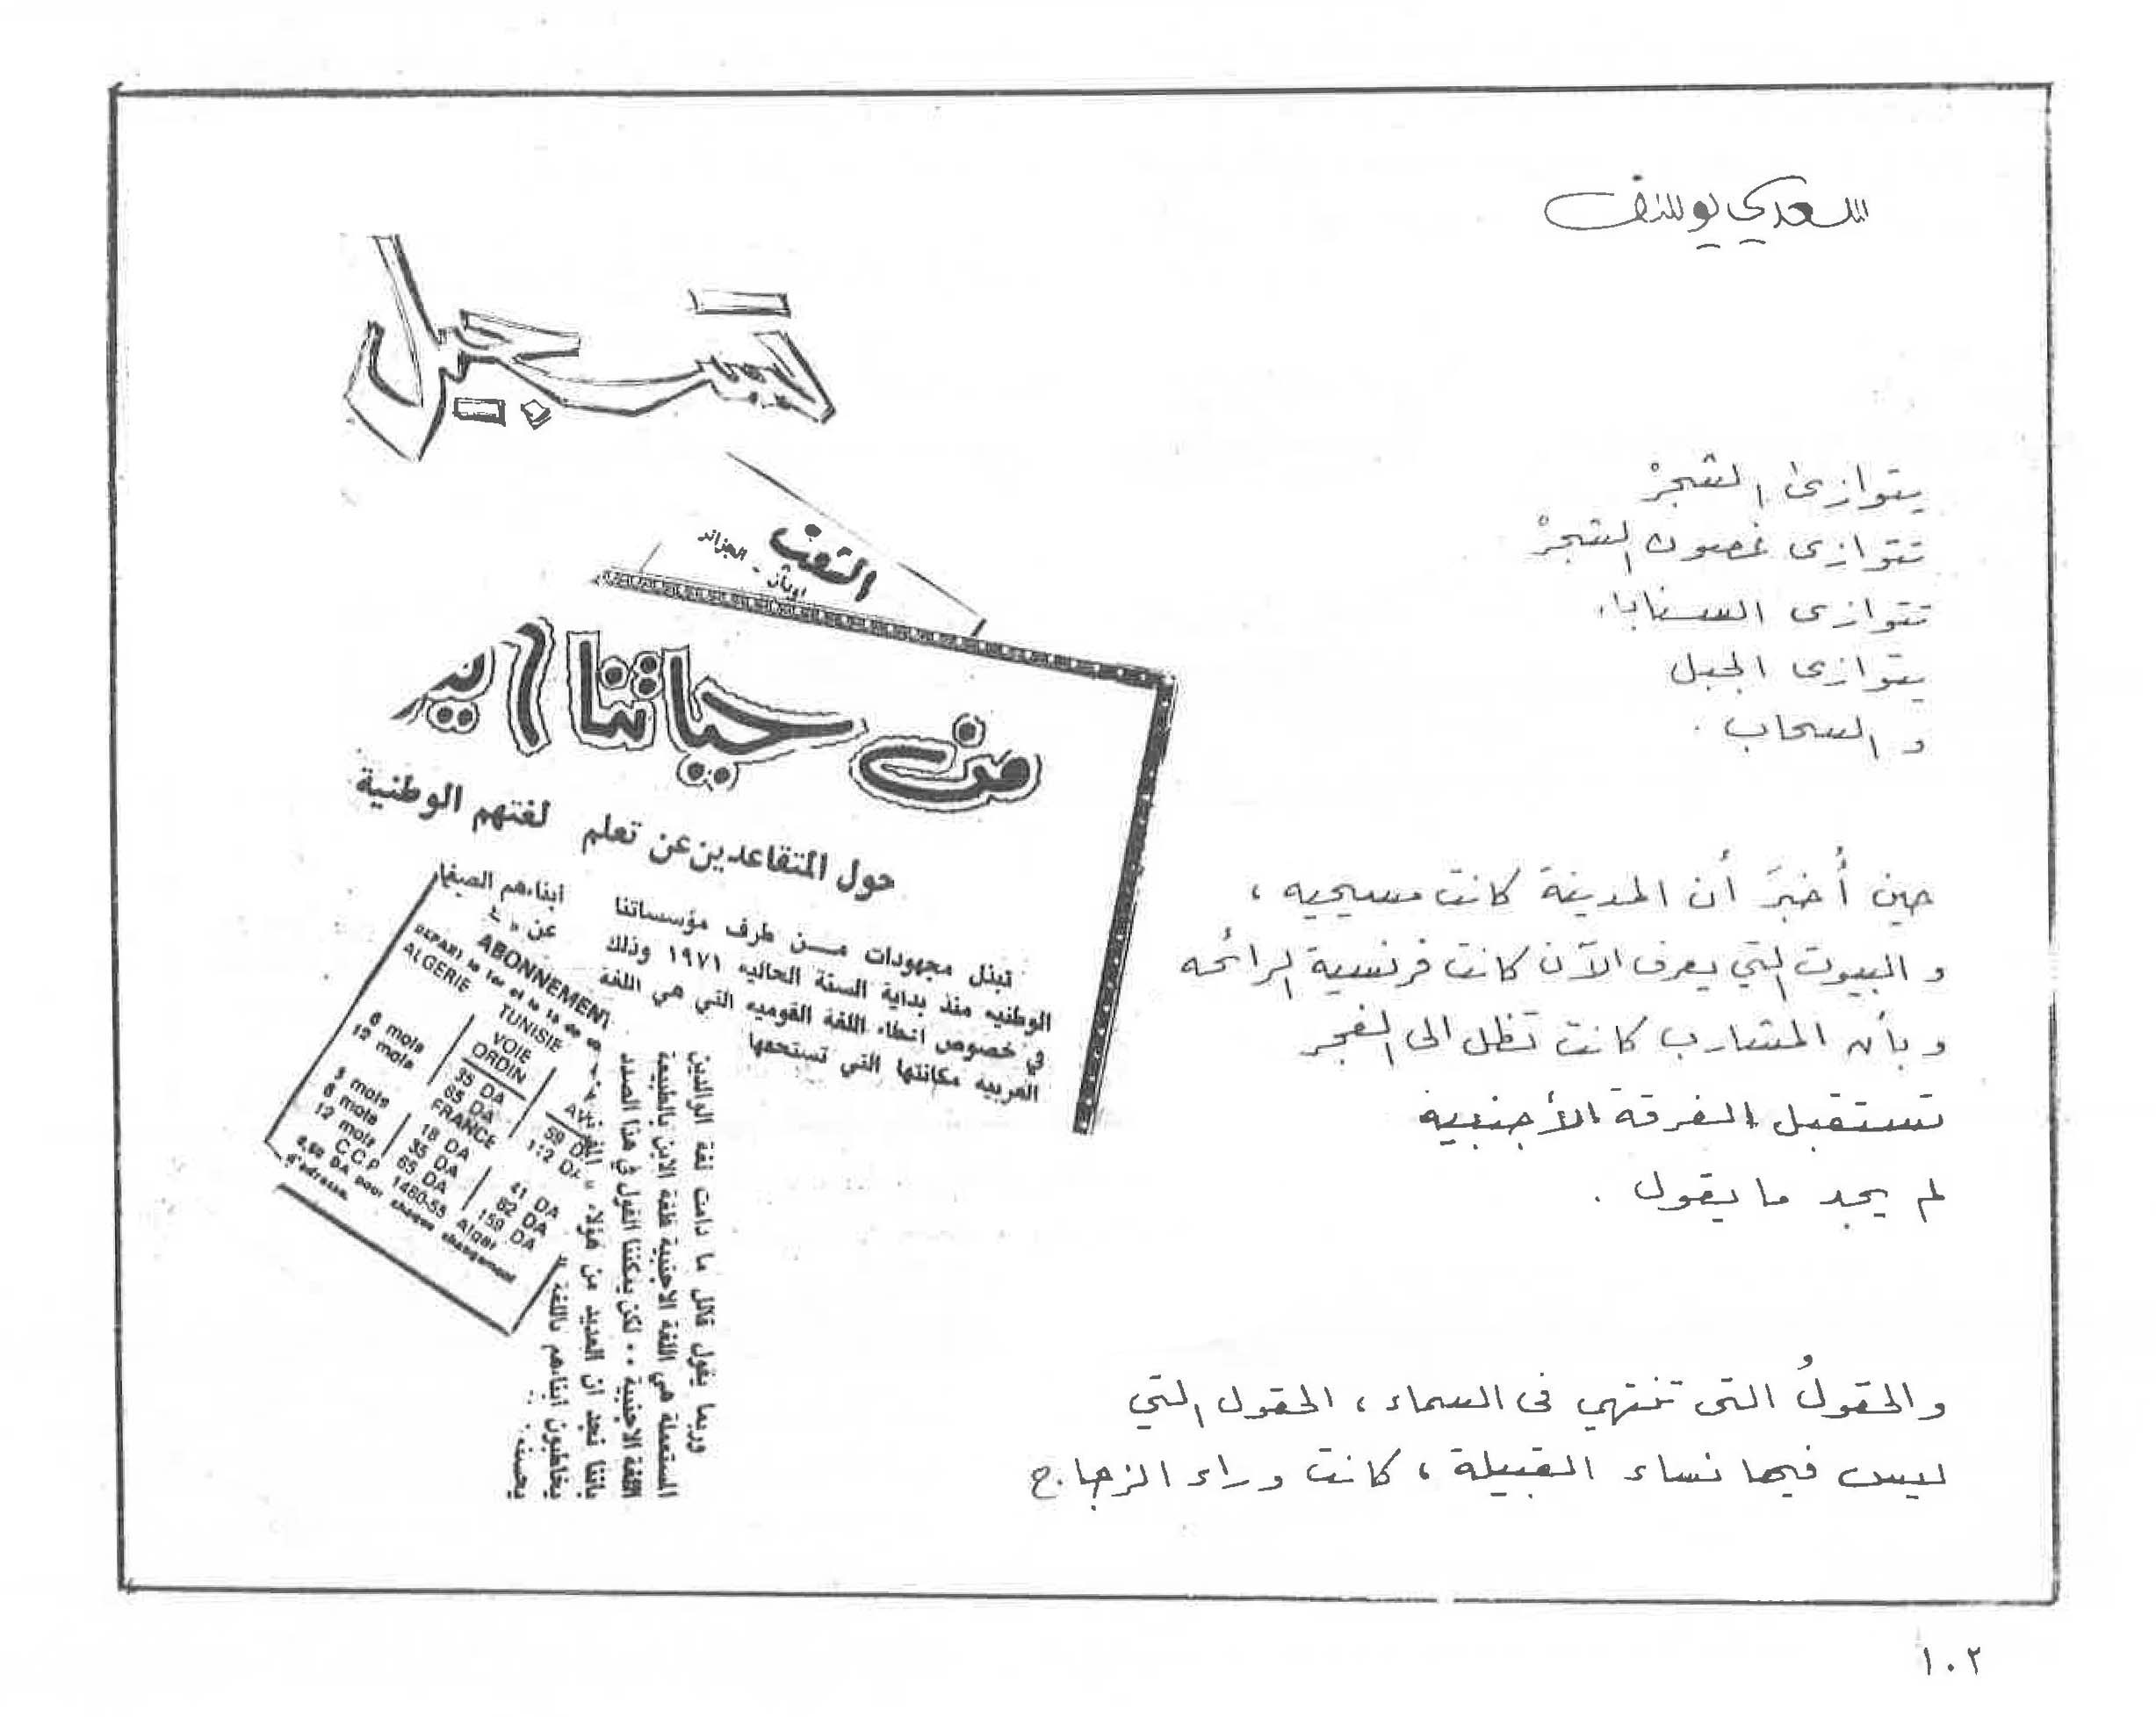 سعدي يوسف
تسجيل
يتوازى الشجرْ
تتوازى غصون الشجرْ
تتوازى السنابل
يتوازى الجبل
و السحاب .
حين أُخبرَ أن المدينة كانت مسيحيه ،
و البيوت التي يعرف الآن كانت فرنسية الرائحه
و بأن المشارب كانت تظل الى الفجر
تستقبل الفرقة الأجنبية
لم يجد ما يقول .
والحقولُ التى تنتهي فى السماء ، الحقول التي
ليس فيها نساء القبيلة ، كانت وراء الزجاج
الشعب
الجزائر
من حياتنا الي
حول المتقاعدين عن تعلم لغتهم الوطنية
تبذل مجهودات مـــن طرف مؤسساتنا
الوطنيه منذ بداية السنة الحاليه ١٩٧١ وذلك
في خصوص اعطاء اللغة القوميه التي هي اللغة
العربيه مكانتها التي تستحقها
ابناءهم الصغا
عن
وربما يقول قائل ما دامت لغة الوالدين
المستعملة هي اللغة الاجنبية فلغة الابن بالطبيعة
اللغة الاجنبية . . لكن يمكننا القول في هذا الصدد
باننا نجد ان العديد من هؤلاء «
يخاطبون ابناءهم باللغة «
يحسنه
ABONNEMENT
DEPART le 1er et le 15 de
ALGERIE TUNISIE
VOIE
ORDIN AV
6 mois 35 DA 59 D
12 mois 65 DA 112 DA
FRANCE
3 mois 18 DA 41 DA
6 mois 35 DA 82 DA
12 mois 65 DA 159 DA
C.C.P 1460-55 Alger
DA pour chaque changement
d'adresse.
١٠٢